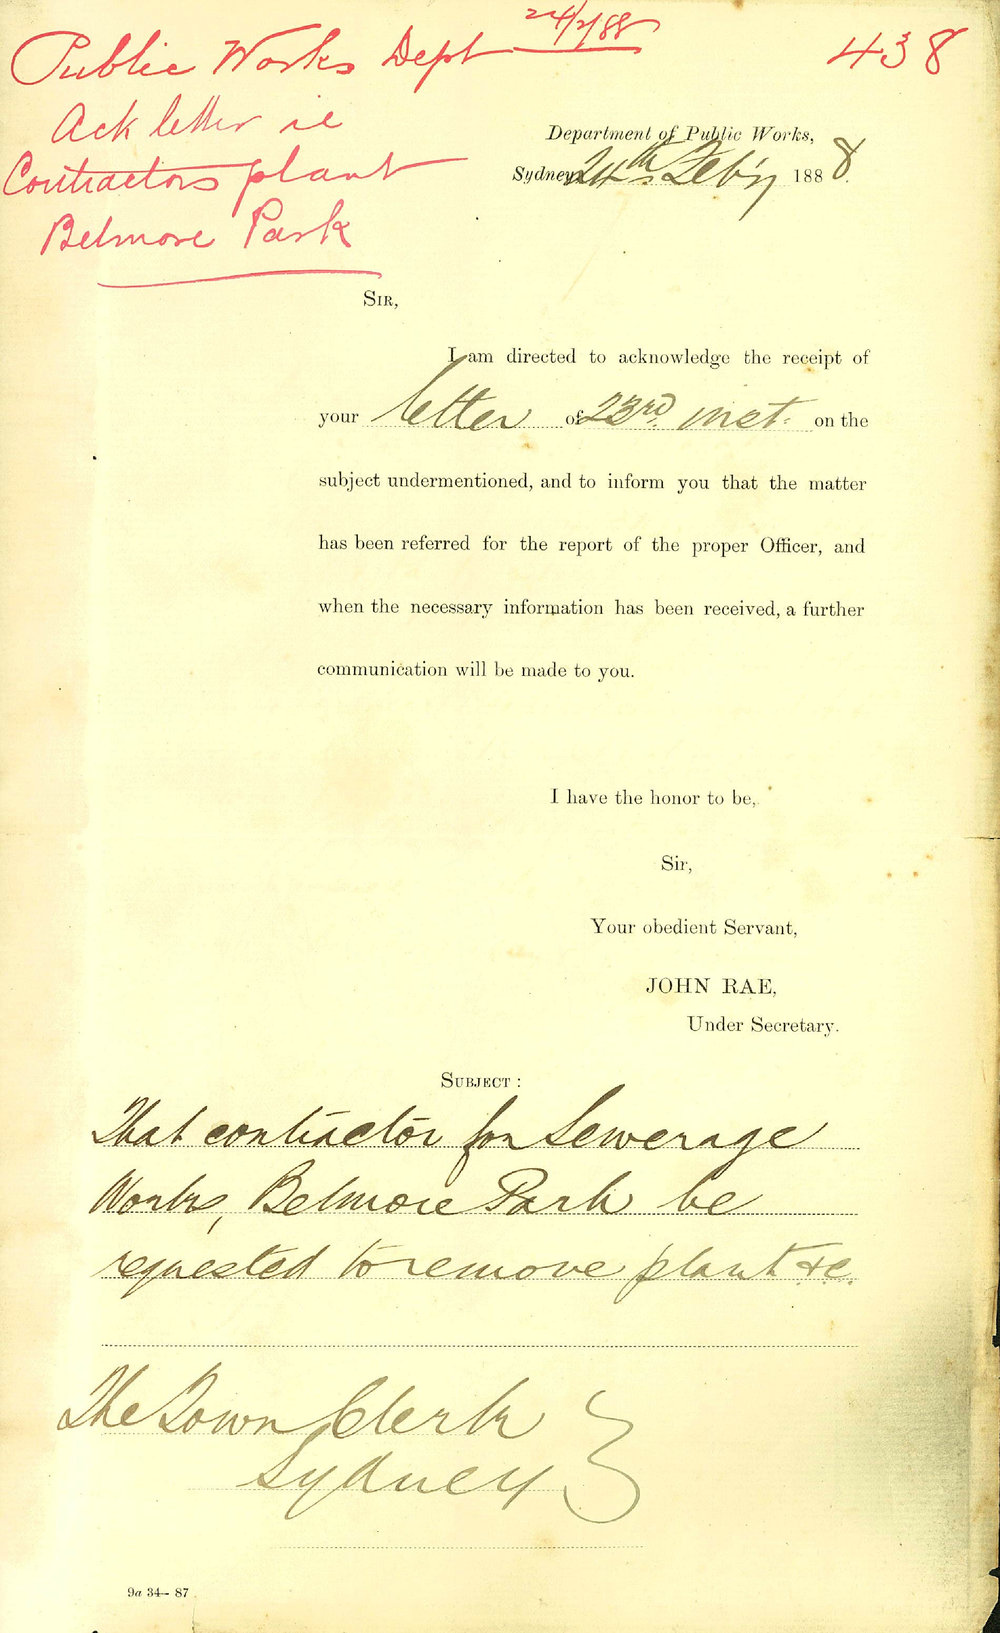 24/2/88
438
Public Works Dept
Ack letter re
Contractors plant
Belmore Park
Department of Public Works,
Sydney, 24th Feb'y 1888.
SIR,
I am directed to acknowledge the receipt of
your letter of 23rd inst. on the
subject undermentioned, and to inform you that the matter
has been referred for the report of the proper Officer, and
when the necessary information has been received, a further
communication will be made to you.
I have the honor to be,
Sir,
Your obedient Servant,
JOHN RAE,
Under Secretary.
SUBJECT :
That contractor for Sewerage
Works, Belmore Park be
requested to remove plant &c.
The Town Clerk
Sydney
9a 34— 87